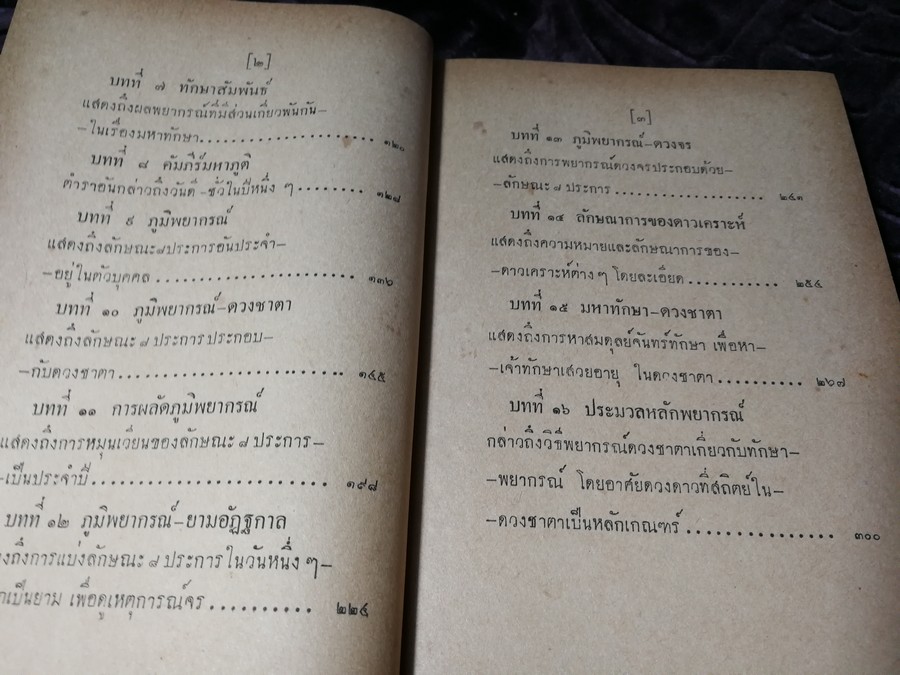 [๒]
บทที่ ๗ ทักษาสัมพันธ์
แสดงถึงผลพยากรณ์ที่มีส่วนเกี่ยวพันกัน–
–ในเรื่องมหาทักษา........................ ๑๒๐
บทที่ ๘ คัมภีร์มหาภูติ
ตำราอันกล่าวถึงวันดี –ชั่วในปีหนึ่ง ๆ ........ ๑๒๘
บทที่ ๙ ภูมิพยากรณ์
แสดงถึงลักษณะ๘ประการอันประจำ–
–อยู่ในตัวบุคคล ........................ ๑๓๖
บทที่ ๑๐ ภูมิพยากรณ์–ดวงชาตา
แสดงถึงลักษณะ ๘ ประการประกอบ–
–กับดวงชาตา........................ ๑๔๕
บทที่ ๑๑ การผลัดภูมิพยากรณ์
แสดงถึงการหมุนเวียนของลักษณะ ๘ ประการ–
–เป็นประจำปี........................ ๑๙๘
บทที่ ๑๒ ภูมิพยากรณ์–ยามอัฏฐกาล
ถึงการแบ่งลักษณะ ๘ ประการในวันหนึ่ง ๆ–
เป็นยาม เพื่อดูเหตุการณ์จร.......... ๒๒๔
[๓]
บทที่ ๑๓ ภูมิพยากรณ์–ดวงจร
แสดงถึงการพยากรณ์ดวงจรประกอบด้วย–
–ลักษณะ ๘ ประการ .................. ๒๔๓
บทที่ ๑๔ ลักษณาการของดาวเคราะห์
แสดงถึงความหมายและลักษณาการของ–
–ดาวเคราะห์ต่าง ๆ โดยละเอียด............ ๒๕๔
บทที่ ๑๕ มหาทักษา–ดวงชาตา
แสดงถึงการหาสมดุลย์จันทร์ทักษา เพื่อหา–
–เจ้าทักษาเสวยอายุ ในดวงชาตา.......... ๒๖๗
บทที่ ๑๖ ประมวลหลักพยากรณ์
กล่าวถึงวิธีพยากรณ์ดวงชาตาเกี่ยวกับทักษา–
–พยากรณ์ โดยอาศัยดวงดาวที่สถิตย์ใน–
–ดวงชาตาเป็นหลักเกณฑร์ ................ ๓๐๐